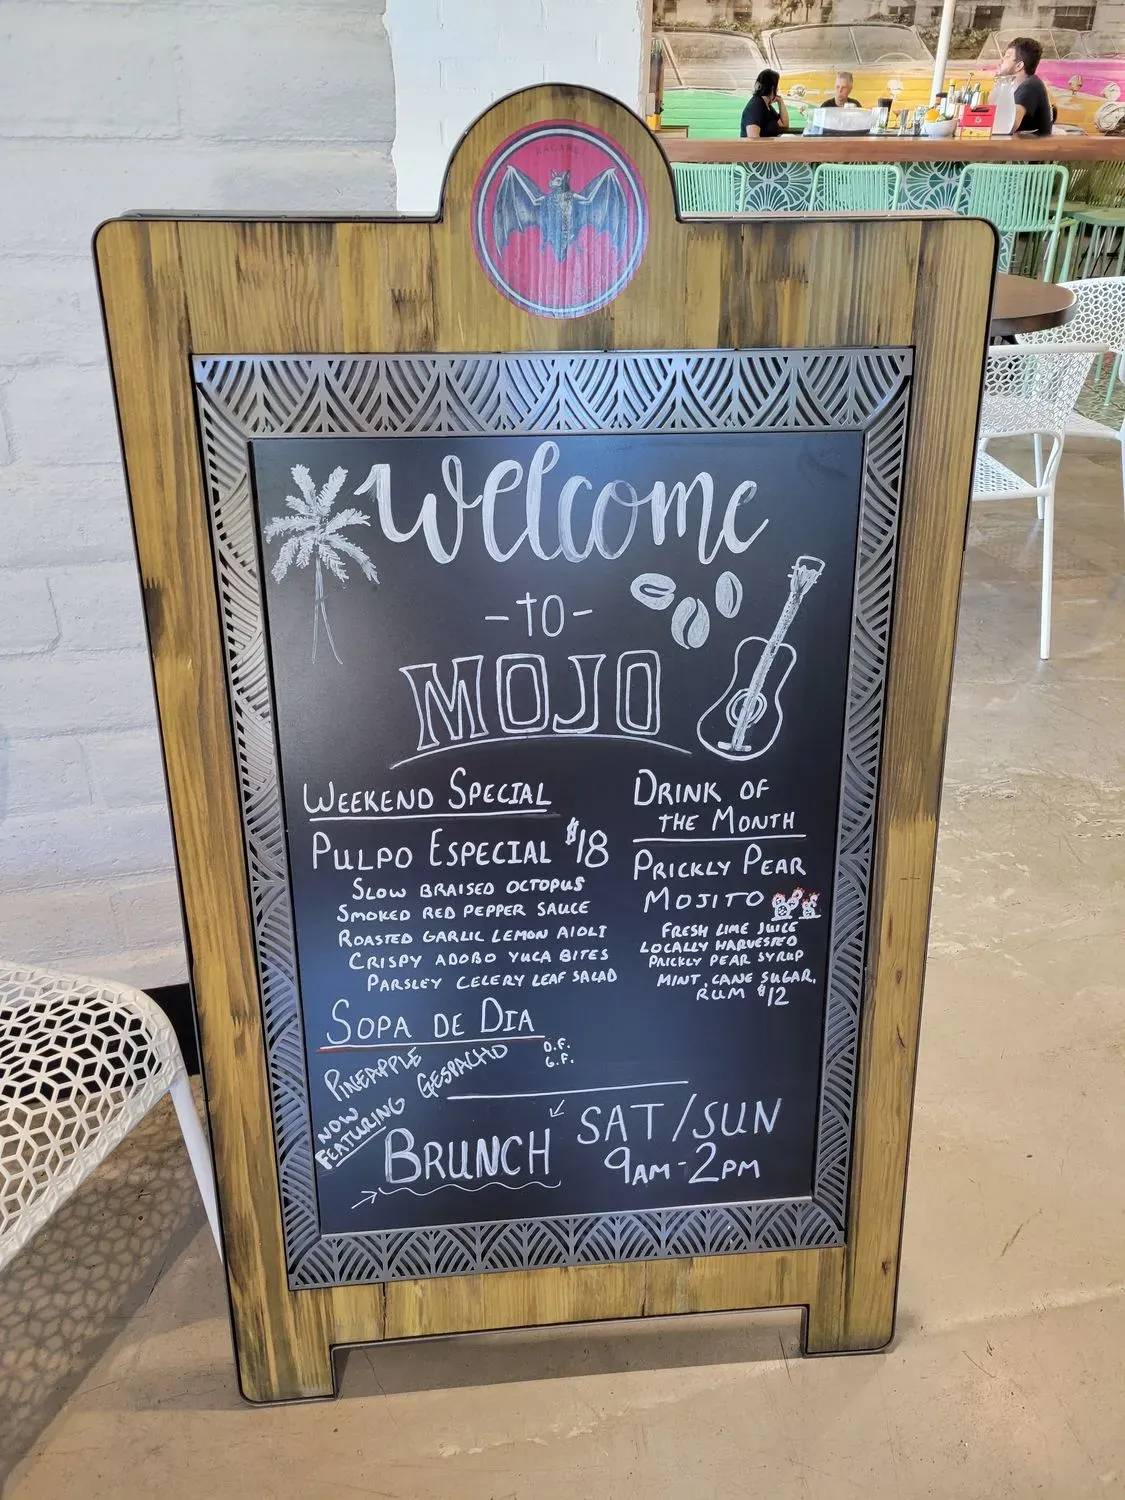 BACARDI
Welcome
-TO-
MOJO
WEEKEND SPECIAL
PULPO ESPECIAL $18
SLOW BRAISED OCTOPUS
SMOKED RED PEPPER SAUCE
ROASTED GARLIC LEMON AIOLI
CRISPY ADOBO YUCA BITES
PARSLEY CELERY LEAF SALAD
SOPA DE DIA
PINEAPPLE GESPACHO
D.F.
G.F.
DRINK OF
THE MONTH
PRICKLY PEAR
MOJITO
FRESH LIME JUICE
LOCALLY HARVESTED
PRICKLY PEAR SYRUP
MINT, CANE SUGAR,
RUM $12
NOW
FEATURING
BRUNCH
SAT/SUN
9AM-2PM